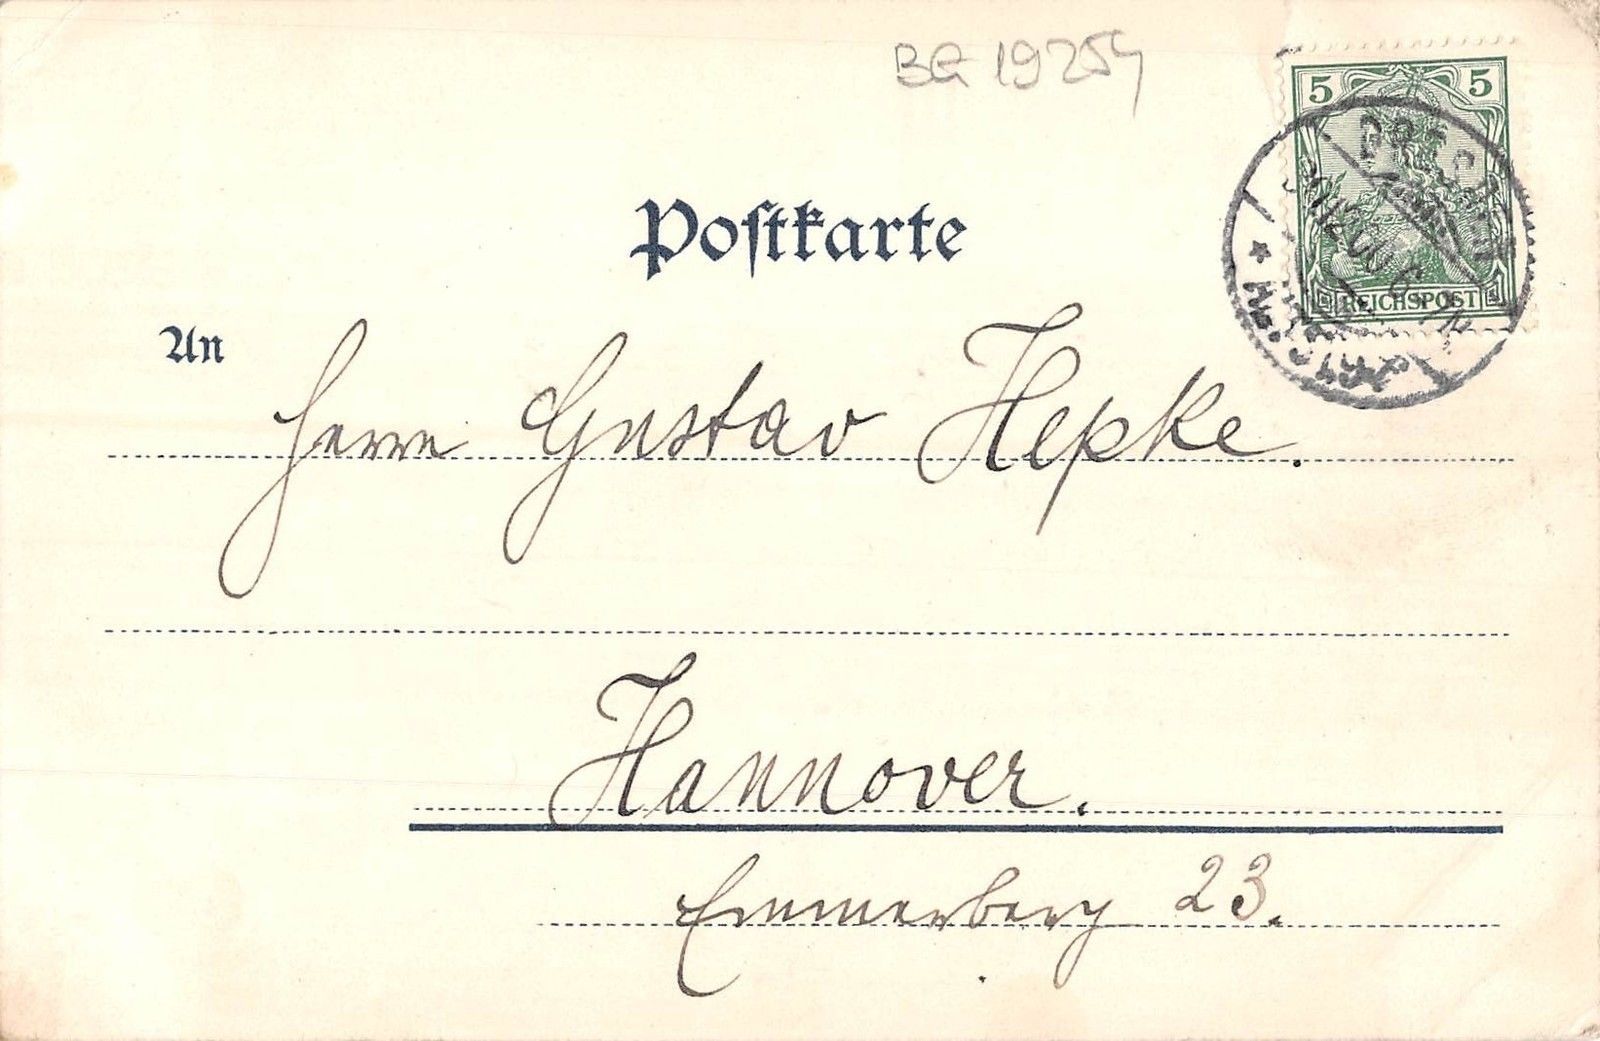 BG 19254
5 5
DRESDEN
REICHSPOST
Postkarte
An
Herrn Gustav Hepke.
Hannover.
Emmerberg 23.